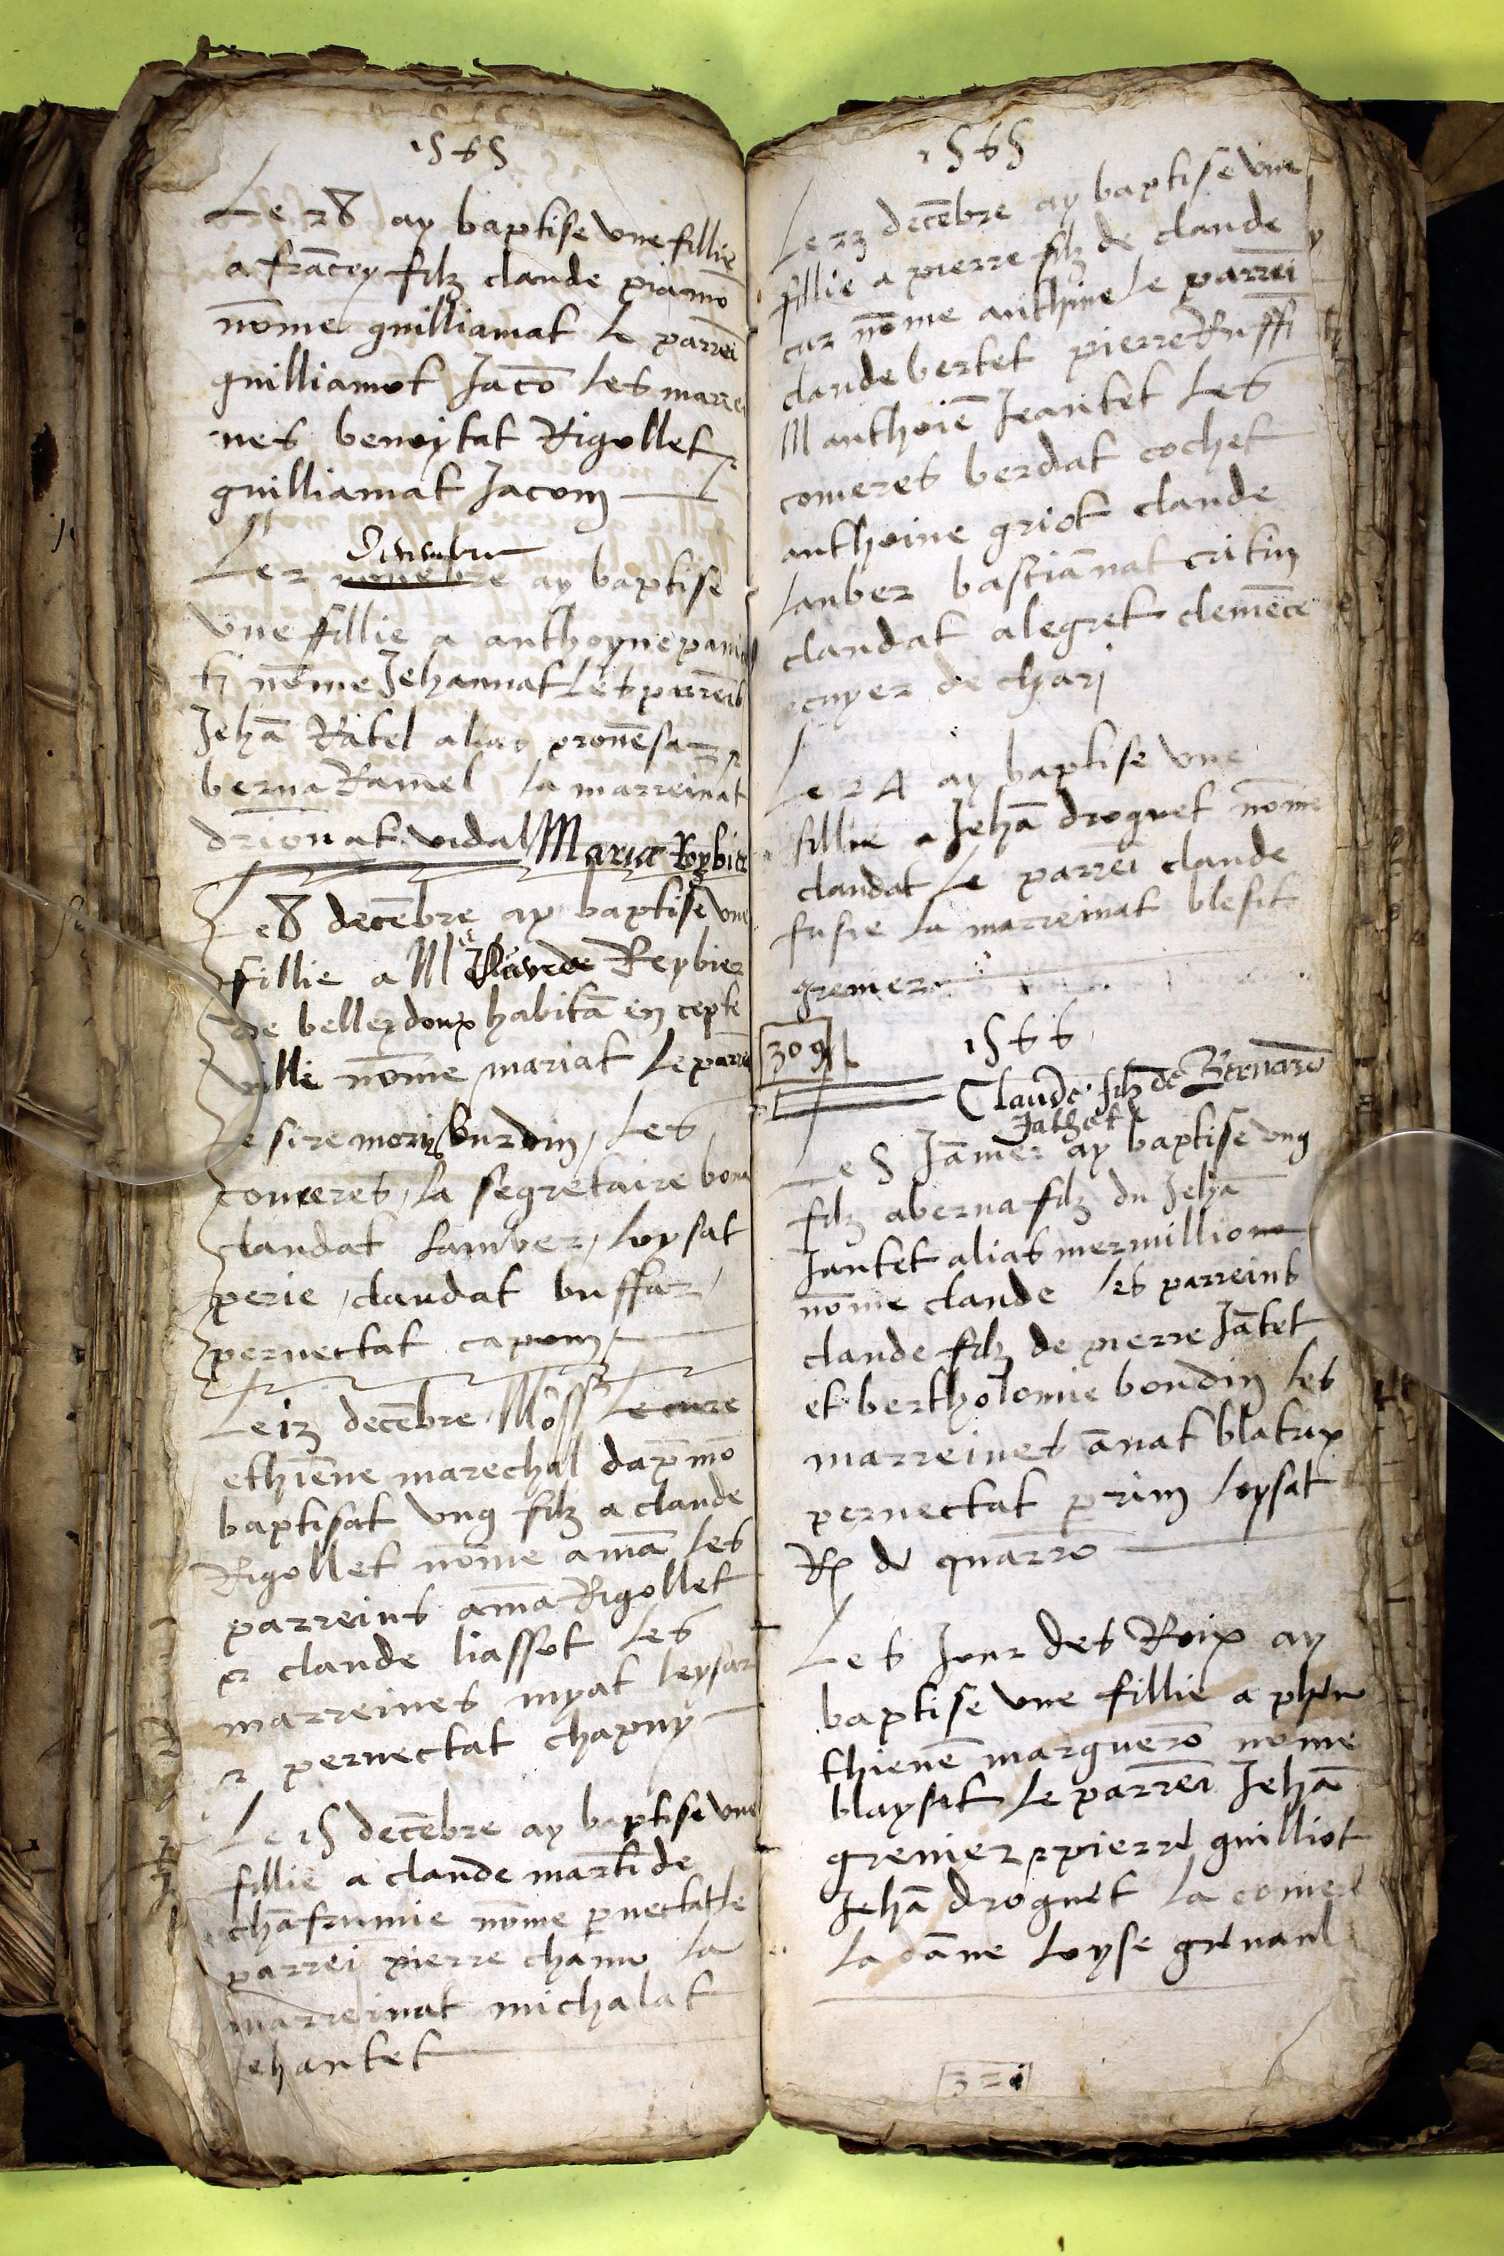 1565
Le 28 ay baptise une fillie
a francoy filz claude piamō
nōme guilliamat le parrei
guilliamot Jacō les marrei
nes benoytat Rigollet
guilliamat Jacom
Decembre
Le 2 novēbre ay baptise
une fillie a anthoyne
nōme Jehannat les parreīs
Jehā Ratel alias provēsa
berna Ramel la marreinat
driōnat vidal Maria Reybier
Le 8 decēbre ay baptise une
fillie a M Reybier
de belleydoux habitā en cepte
ville nōme mariat Le parrei
Le sire mory burdin, Les
comeres, la segretaire bona
claudat lamber, loysat
perie, claudat buffar,
pernectat capom
Le 13 decēbre Moss Le cure
ethiēne marechal dapmō
baptisat ung filz a claude
Rigollet nōme amā les
parreins amā Rigollet
et claude liassot les
marreines myat leysar
et pernectat chapuy
Le 15 decēbre ay baptise une
fillie a claude marti de
chāfrumie nōme pernectat le
parrei pierre chamo la
marreinat michalat
Jehantet
1565
Le 23 decēbre ay baptise une
fillie a pierre filz de claude
cur nōme anthine Le parrei
claude bertet pierre Ruffi
M anthoiē Jeantet Les
comeres berdat cochet
anthoine griot claude
lanber bastiānat critin
claudat alegret clemēce
cuyer de chari
Le 24 ay baptise une
fillie a Jehā droguet nōme
claudat Le parrei claude
fusie la marreinat blesit
grenier
309
1566
Claude filz de Bernard
Jathet
Le 5 Jāvier ay baptise ung
filz a berna filz du Jehā
Jantet alias mermillion
nōme claude les parreins
claude filz de pierre Jātet
et bertholomie boudin les
marreines ānat blatrix
pernectat prim Loysat
Rp de quarro
Le 6 Jour des Roix ay
baptise une fillie a phu
thienē marguerō nome
blaysat Le parrei Jehā
grenier et pierre guilliot
Jehā droguet La comere
La dāne Loyse grenaul
321